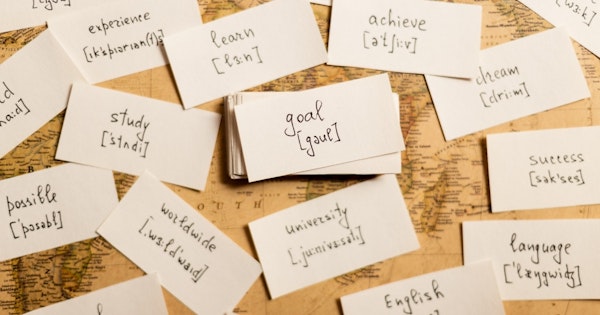 experience
[ik'spiəriən(t)
learn
[lɜ:n]
achieve
[ə'tʃi:v]
dream
[dri:m]
study
['stʌdi]
goal
[gəul]
success
[sək'ses]
possible
['pɒsəbl]
worldwide
[,wɜ:ld'waid]
university
[,ju:ni'vɜ:səti]
language
['læŋgwidʒ]
English